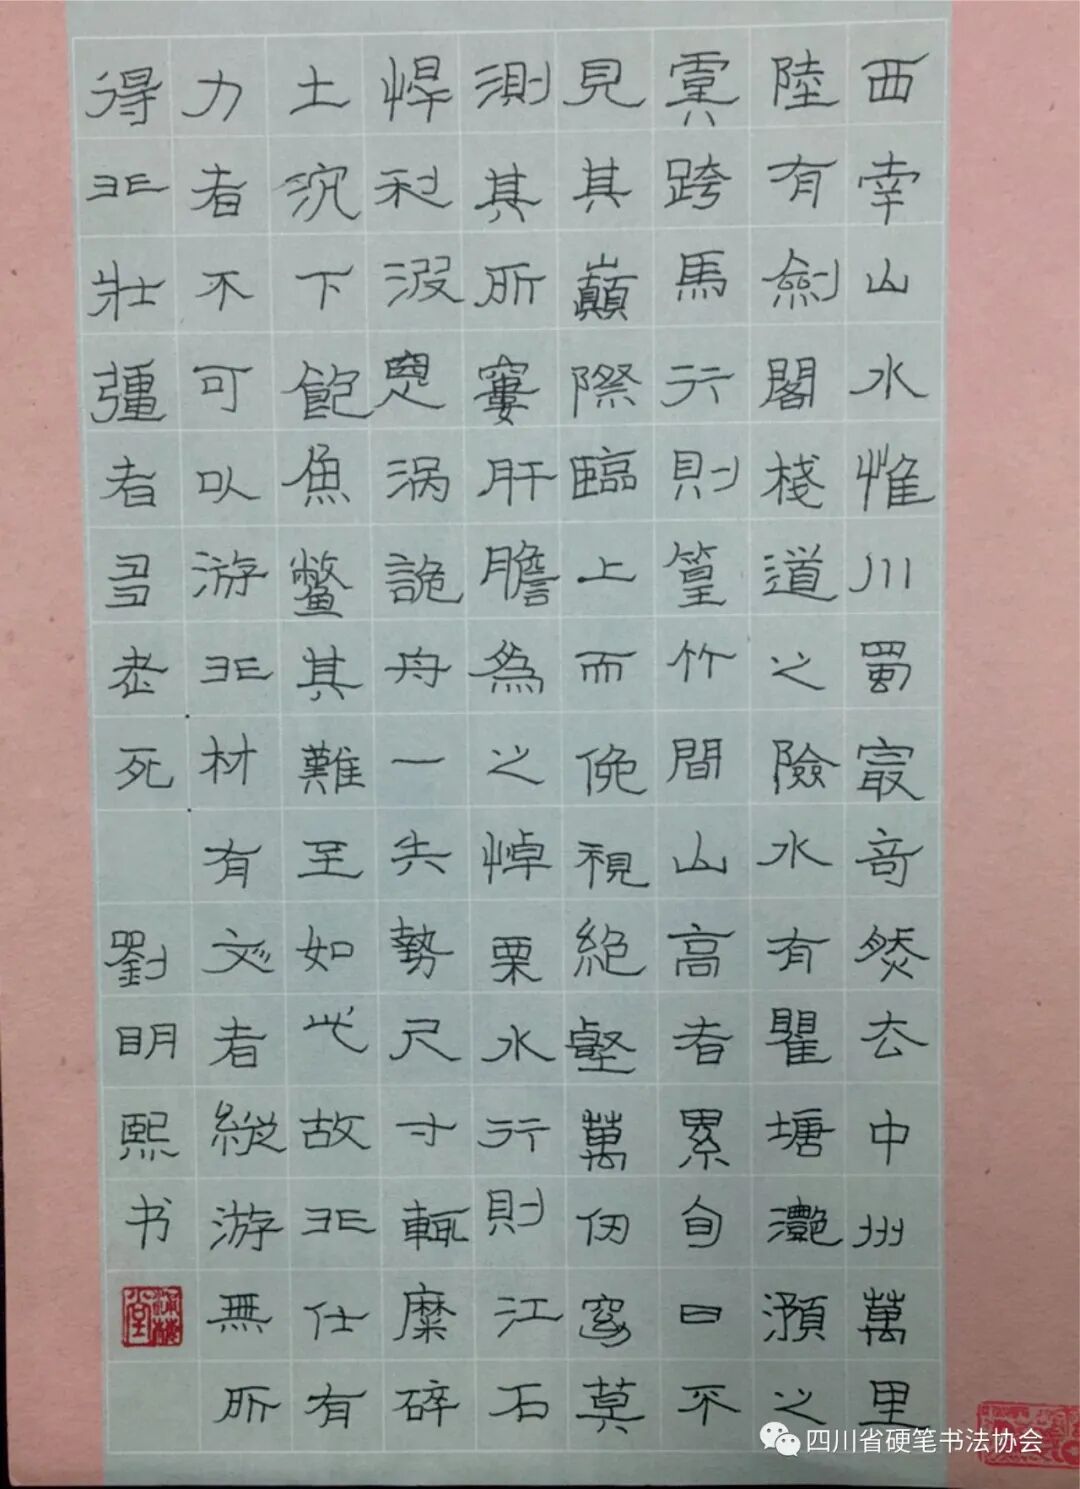 西南山水惟川蜀最奇然去中州萬里
陸有劍閣棧道之險水有瞿塘灩澦之
虞跨馬行則篁竹間山高者累旬日不
見其巔際臨上而俛視絕壑萬仞窈莫
測其所窮肝膽為之悼栗水行則江石
悍利波惡渦詭舟一失勢尺寸輒糜碎
土沉下飽魚鱉其難至如此故非仕有
力者不可以游非材有文者縱游無所
得非壯彊者多老死
劉明熙书
四川省硬笔书法协会